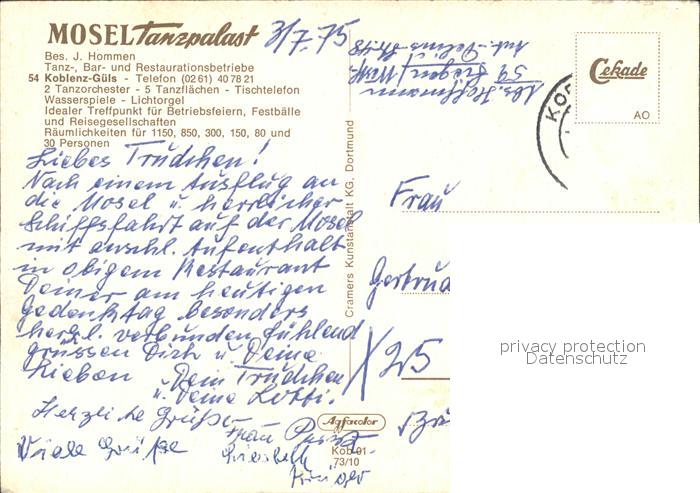 MOSEL Tanzpalast
3/7.75
Bes. J. Hommen
Tanz-, Bar- und Restaurationsbetriebe
54 Koblenz-Güls - Telefon (02 61) 40 78 21
2 Tanzorchester - 5 Tanzflächen - Tischtelefon
Wasserspiele - Lichtorgel
Idealer Treffpunkt für Betriebsfeiern, Festbälle
und Reisegesellschaften
Räumlichkeiten für 1150, 850, 300, 150, 80 und
30 Personen
Liebes Trudchen!
Nach einem Ausflug an
die Mosel u. herrlicher
Schiffsfahrt auf der Mosel
mit anschl. Aufenthalt
in obigem Restaurant
Deiner am heutigen
Gedenktag besonders
herzl. verbunden fühlend
grüssen Dich u. Deine
Lieben Dein Trudchen
u. Deine Lotti.
Herzliche Grüße
Frau
Viele Grüße
Cramers Kunstanstalt KG. Dortmund
Agfacolor
Kob 91
73/10
Abs. Hoffmann
59 Siegen
Cekade
AO
KO
Frau
Gertrud
25
privacy protection
Datenschutz